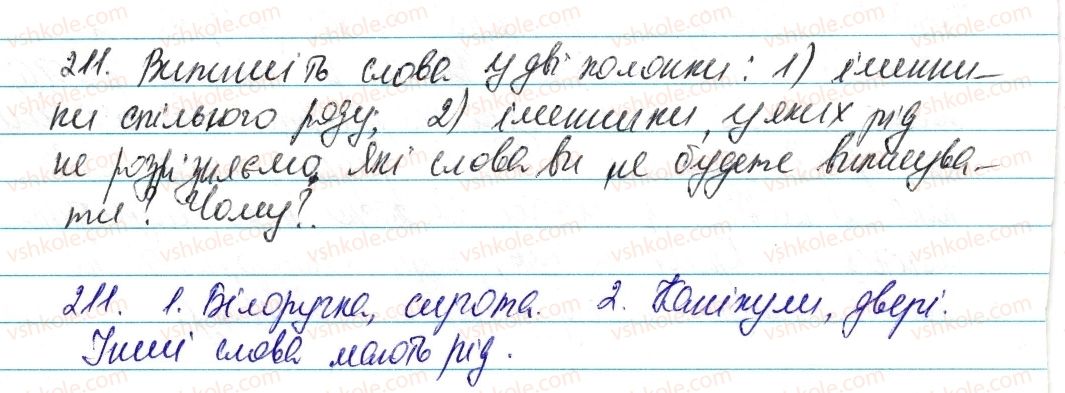 211. Випишіть слова у дві колонки: 1) іменни-
ки спільного роду; 2) іменники, у яких рід
не розрізняємо. Які слова ви не будете виписува-
ти? Чому?.
211. 1. Білоручка, сирота. 2. Канікули, двері.
Інші слова мають рід.